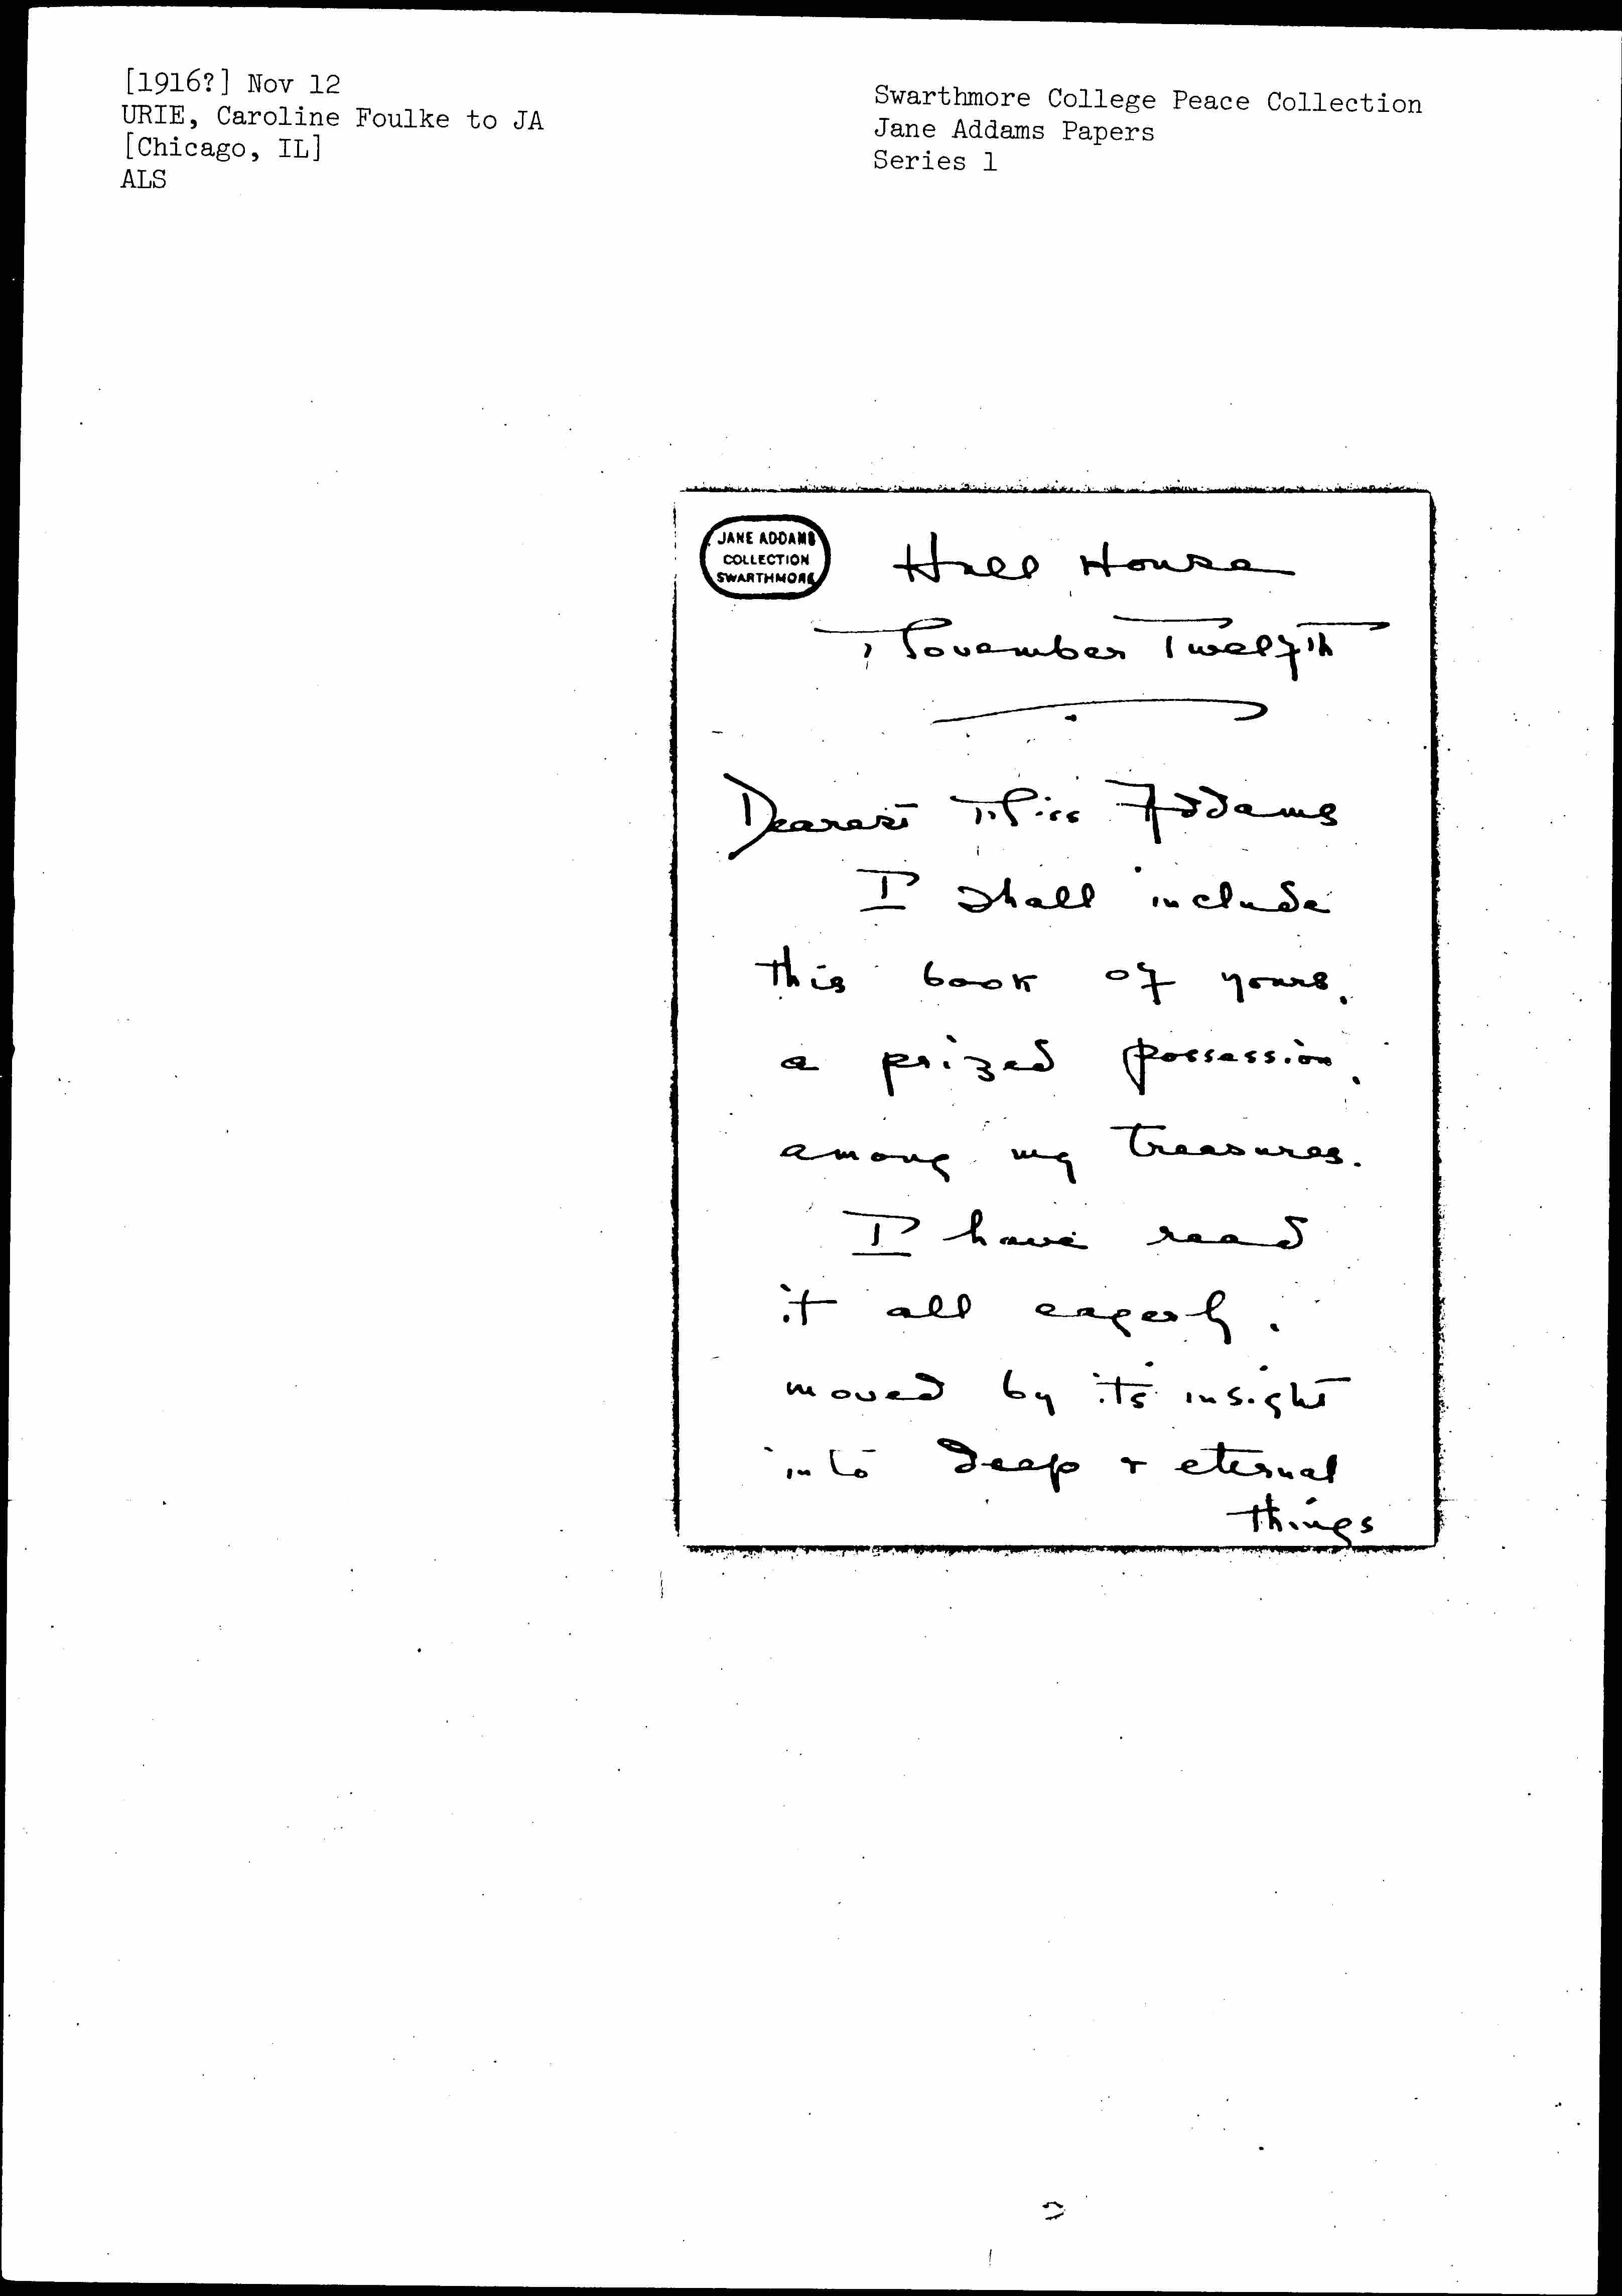 [1916?] Nov 12
URIE, Caroline Foulke to JA
[Chicago, IL]
ALS
Swarthmore College Peace Collection
Jane Addams Papers
Series 1
JANE ADDAMS
COLLECTION
SWARTHMORE
Hull House
November Twelfth
Dearest Miss Addams
I shall include
this book of yours,
a prized possession,
among my treasures.
I have read
it all eagerly,
moved by its insight
into deep + eternal
things